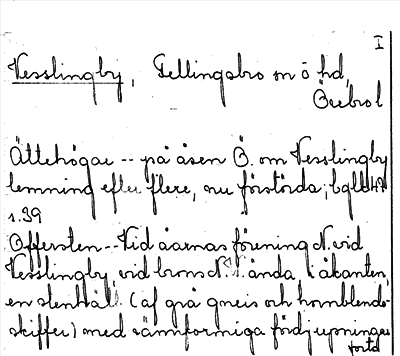 I
Vesslingby, Fellingsbro sn o hd,
Örebro l
Ättehögar -- på åsen Ö. om Vesslingby
lemning efter flere, nu förstörda; bgl
s. 39
Offersten -- Vid åarnas förening N. vid
Vesslingby, vid brons N. ända i åkanten,
en stenhäll (af grå gneis och hornblende-
skiffer) med rännformiga fördjupningar
forts